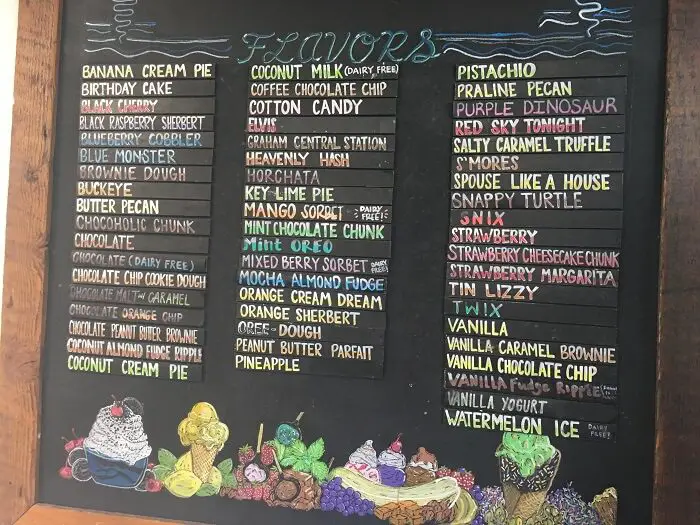 FLAVORS
BANANA CREAM PIE
BIRTHDAY CAKE
BLACK CHERRY
BLACK RASPBERRY SHERBERT
BLUEBERRY COBBLER
BLUE MONSTER
BROWNIE DOUGH
BUCKEYE
BUTTER PECAN
CHOCOHOLIC CHUNK
CHOCOLATE
CHOCOLATE (DAIRY FREE)
CHOCOLATE CHIP COOKIE DOUGH
CHOCOLATE MALT CARAMEL
CHOCOLATE ORANGE CHIP
CHOCOLATE PEANUT BUTTER BROWNIE
COCONUT ALMOND FUDGE RIPPLE
COCONUT CREAM PIE
COCONUT MILK (DAIRY FREE)
COFFEE CHOCOLATE CHIP
COTTON CANDY
ELVIS
GRAHAM CENTRAL STATION
HEAVENLY HASH
HORCHATA
KEY LIME PIE
MANGO SORBET DAIRY FREE!
MINT CHOCOLATE CHUNK
MINT OREO
MIXED BERRY SORBET DAIRY FREE!
MOCHA ALMOND FUDGE
ORANGE CREAM DREAM
ORANGE SHERBERT
OREE-DOUGH
PEANUT BUTTER PARFAIT
PINEAPPLE
PISTACHIO
PRALINE PECAN
PURPLE DINOSAUR
RED SKY TONIGHT
SALTY CARAMEL TRUFFLE
S'MORES
SPOUSE LIKE A HOUSE
SNAPPY TURTLE
SNIX
STRAWBERRY
STRAWBERRY CHEESECAKE CHUNK
STRAWBERRY MARGARITA
TIN LIZZY
TWIX
VANILLA
VANILLA CARAMEL BROWNIE
VANILLA CHOCOLATE CHIP
VANILLA FUDGE RIPPLE
VANILLA YOGURT
WATERMELON ICE DAIRY FREE!